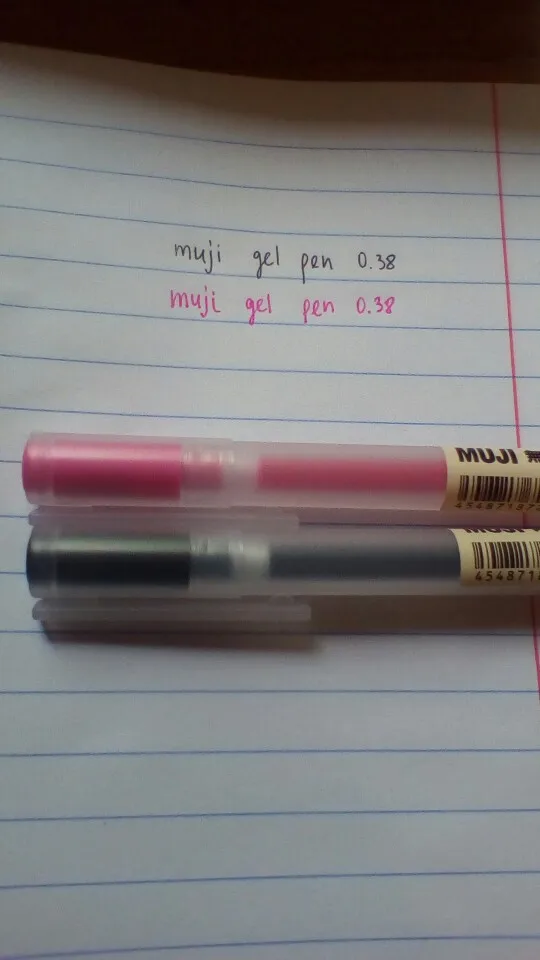 muji gel pen 0.38
muji gel pen 0.38
MUJI 無
4548718
MUJI
454871